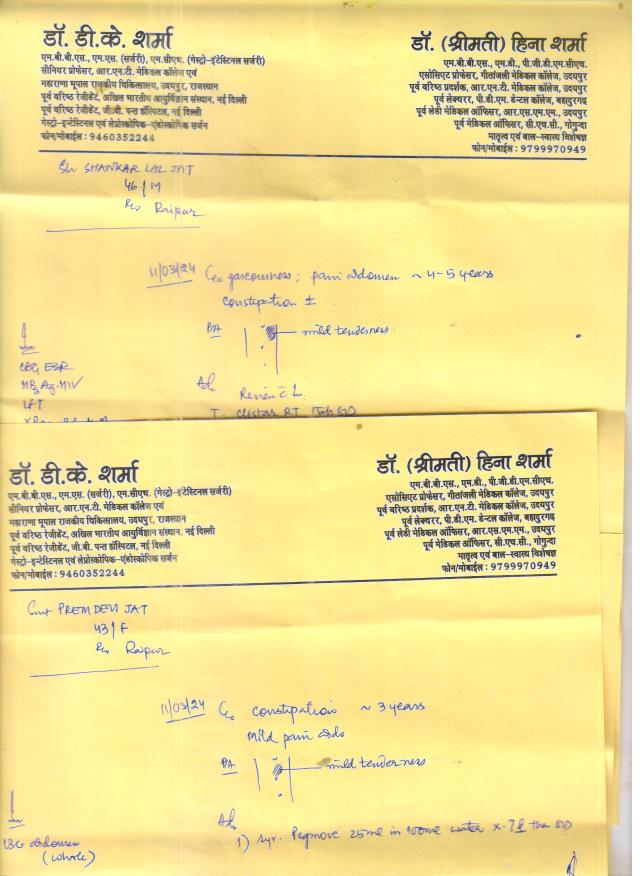 डॉ. डी.के. शर्मा
एम.बी.बी.एस., एम.एस. (सर्जरी), एम.सीएच. (गेस्ट्रो-इंटेस्टिनल सर्जरी)
सीनियर प्रोफेसर, आर.एन.टी. मेडिकल कॉलेज एवं
महाराणा भूपाल राजकीय चिकित्सालय, उदयपुर, राजस्थान
पूर्व वरिष्ठ रेजीडेंट, अखिल भारतीय आयुर्विज्ञान संस्थान, नई दिल्ली
पूर्व वरिष्ठ रेजीडेंट, जी.बी. पन्त हॉस्पिटल, नई दिल्ली
गेस्ट्रो-इन्टेस्टिनल एवं लेप्रोस्कोपिक-एंडोस्कोपिक सर्जन
फोन/मोबाईल : 9460352244
डॉ. (श्रीमती) हिना शर्मा
एम.बी.बी.एस., एम.डी., पी.जी.डी.एम.सीएच.
एसोसिएट प्रोफेसर, गीतांजली मेडिकल कॉलेज, उदयपुर
पूर्व वरिष्ठ प्रदर्शक, आर.एन.टी. मेडिकल कॉलेज, उदयपुर
पूर्व लेक्चरर, पी.डी.एम. डेन्टल कॉलेज, बहादुरगढ़
पूर्व लेडी मेडिकल ऑफिसर, आर.एस.एम.एम., उदयपुर
पूर्व मेडिकल ऑफिसर, सी.एच.सी., गोगुन्दा
मातृत्व एवं बाल-स्वास्थ्य विशेषज्ञ
फोन/मोबाईल : 9799970949
Sh SHANKAR LAL JAT
46/M
R/o Raipur
11/03/24 C/o gaseousness; pain abdomen ~ 4-5 years
constipation ±
PA mild tenderness
CBC, ESR
HBsAg-HIV
LFT
Adv
Review c̄
T. Clistar RT
डॉ. डी.के. शर्मा
एम.बी.बी.एस., एम.एस. (सर्जरी), एम.सीएच. (गेस्ट्रो-इंटेस्टिनल सर्जरी)
सीनियर प्रोफेसर, आर.एन.टी. मेडिकल कॉलेज एवं
महाराणा भूपाल राजकीय चिकित्सालय, उदयपुर, राजस्थान
पूर्व वरिष्ठ रेजीडेंट, अखिल भारतीय आयुर्विज्ञान संस्थान, नई दिल्ली
पूर्व वरिष्ठ रेजीडेंट, जी.बी. पन्त हॉस्पिटल, नई दिल्ली
गेस्ट्रो-इन्टेस्टिनल एवं लेप्रोस्कोपिक-एंडोस्कोपिक सर्जन
फोन/मोबाईल : 9460352244
डॉ. (श्रीमती) हिना शर्मा
एम.बी.बी.एस., एम.डी., पी.जी.डी.एम.सीएच.
एसोसिएट प्रोफेसर, गीतांजली मेडिकल कॉलेज, उदयपुर
पूर्व वरिष्ठ प्रदर्शक, आर.एन.टी. मेडिकल कॉलेज, उदयपुर
पूर्व लेक्चरर, पी.डी.एम. डेन्टल कॉलेज, बहादुरगढ़
पूर्व लेडी मेडिकल ऑफिसर, आर.एस.एम.एम., उदयपुर
पूर्व मेडिकल ऑफिसर, सी.एच.सी., गोगुन्दा
मातृत्व एवं बाल-स्वास्थ्य विशेषज्ञ
फोन/मोबाईल : 9799970949
Smt PREM DEVI JAT
43/F
R/o Raipur
11/03/24 C/o constipation ~ 3 years
Mild pain abdo
PA mild tenderness
Adv
1) Syr. Pegmove 25ml in 100ml water x 7d
USG abdomen
(whole)